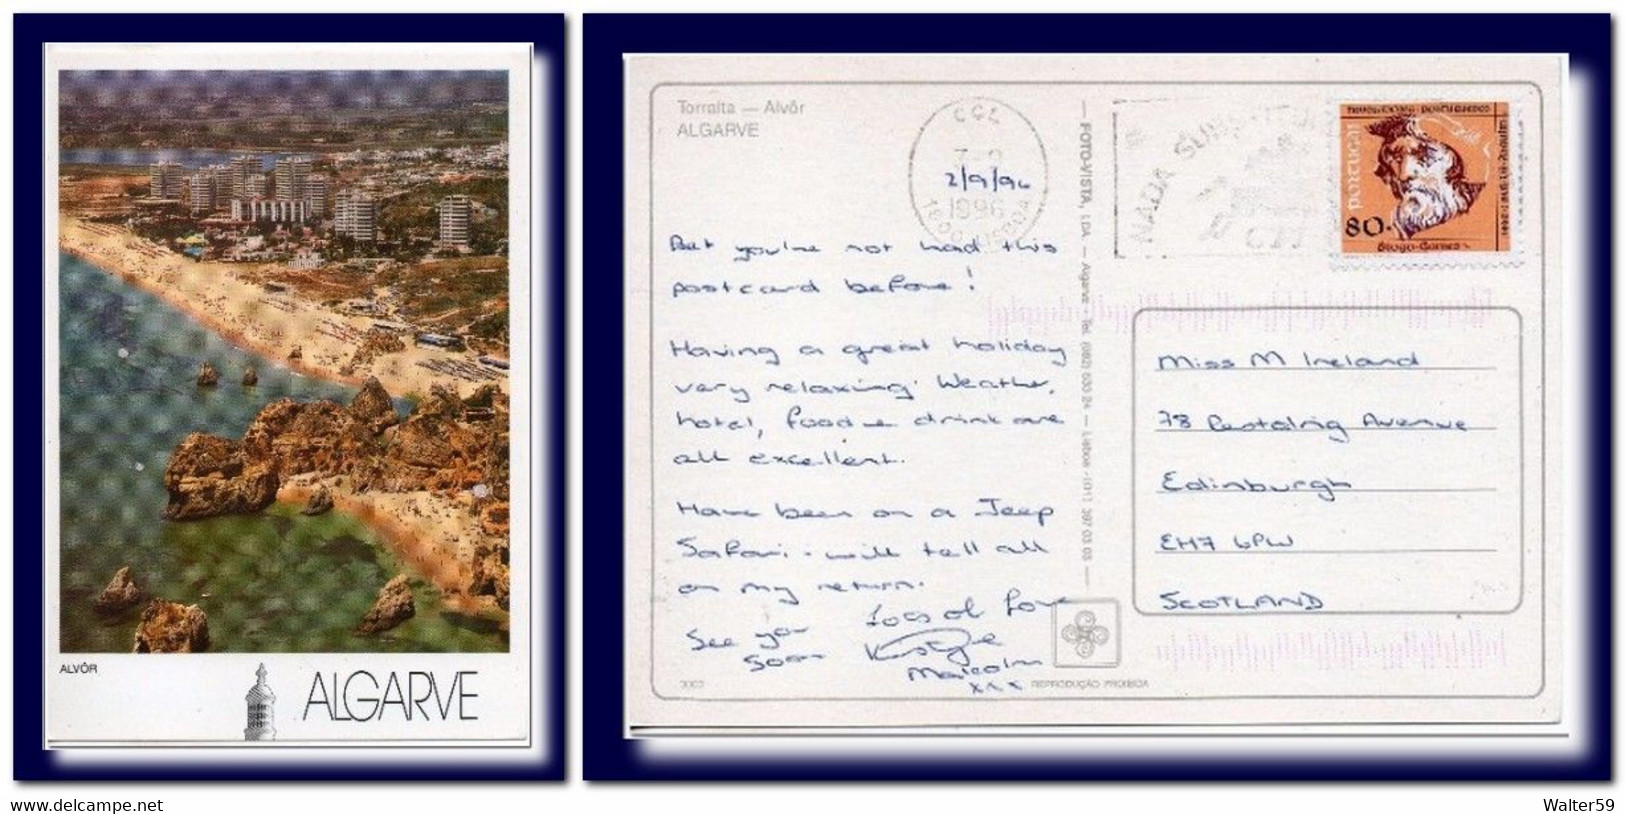 ALVÔR
ALGARVE
Torralta — Alvôr
ALGARVE
CCL
7-9
1996
2/9/96
NADA
CTT
portugal
80.
Diogo Gomes
Bet you've not had this
postcard before!
Having a great holiday
very relaxing. Weather,
hotel, food & drink are
all excellent.
Have been on a Jeep
Safari - will tell all
on my return.
See you
soon
Malcolm
xxx
FOTO-VISTA, LDA. — Algarve - Tel. (082) 630 24 — Lisboa - (01) 397 03 03 —
Miss M Ireland
78 Restalrig Avenue
Edinburgh
EH7 6PW
SCOTLAND
REPRODUÇÃO PROIBIDA
www.delcampe.net
Walter59